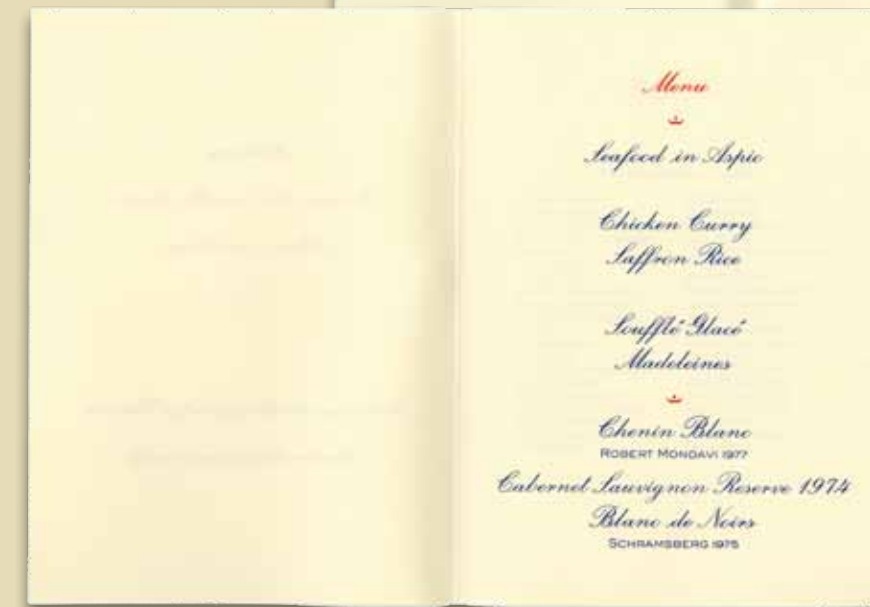 Menu
Seafood in Aspic
Chicken Curry
Saffron Rice
Soufflé Glacé
Madeleines
Chenin Blanc
ROBERT MONDAVI 1977
Cabernet Sauvignon Reserve 1974
Blanc de Noirs
SCHRAMSBERG 1975